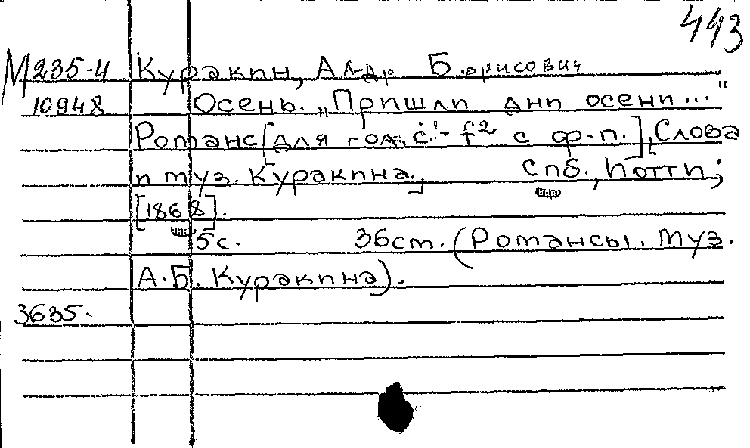 443
М235-4 Куракин, Ал-др Борисович
10948 Осень. „Пришли дни осени..."
Романс [для гол. c¹-f² с ф-п.], Слова
и муз. Куракина., Спб., Иотти;
[1868].
5с. 36ст. (Романсы. Муз.
А.Б. Куракина).
3635.